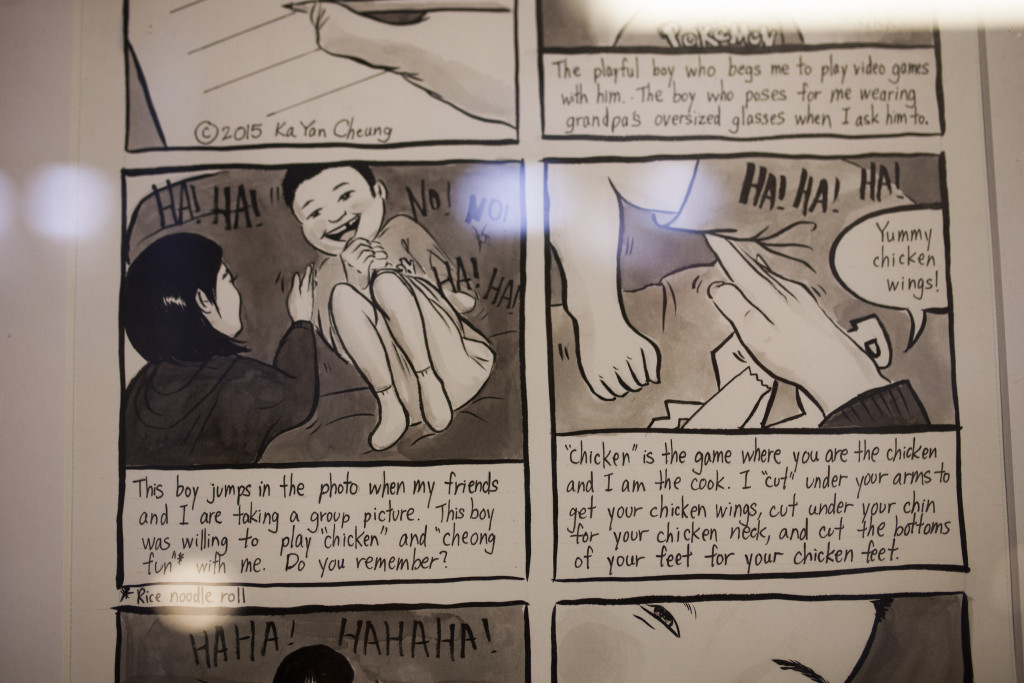 ©2015 Ka Yan Cheung
POKéMON
The playful boy who begs me to play video games
with him. The boy who poses for me wearing
grandpa's oversized glasses when I ask him to.
HA! HA!
NO! NO!
HA! HA!
This boy jumps in the photo when my friends
and I are taking a group picture. This boy
was willing to play "chicken" and "cheong
fun"* with me. Do you remember?
*Rice noodle roll
HA! HA! HA!
Yummy
chicken
wings!
"Chicken" is the game where you are the chicken
and I am the cook. I "cut" under your arms to
get your chicken wings, cut under your chin
for your chicken neck, and cut the bottoms
of your feet for your chicken feet.
HAHA! HAHAHA!